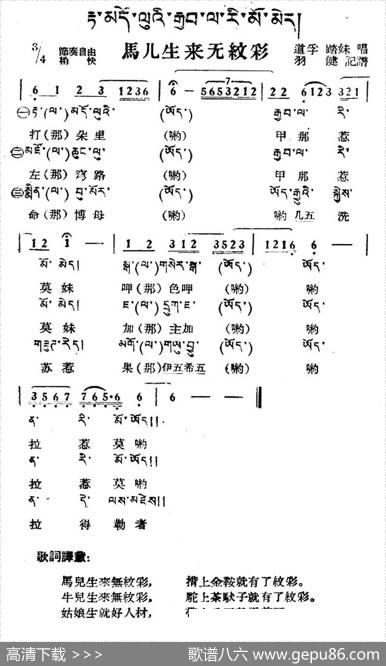 རྟ་མདོ་ལུའི་རྒྱབ་ལ་རི་མོ་མེད།
3/4 節奏自由 稍快 馬儿生来无紋彩 道孚 踏妹 唱
羽健 記譜
6 1 2 3 1236 6 — 5653212 2 2 6123 321
རྟ་(ལ་)མདོ་ལུའི་ (ཡོད་) རྒྱབ་ལ་ རི་
打(那)朵里 (喲) 甲那惹
左(那)穹路 (喲) 甲那惹
命(那)博母 (喲) 喲几五 洗
1 2 1 — 1 2 312 3523 1216 6 —
མོ་ མེད། (ཡོད་) ཡོད་
莫妹 呷(那)色呷 (喲) 喲
མོ་ མེད། (ཡོད་) ཡོད་
莫妹 加(那)主加 (喲) 喲
(ཡོད་) ཡོད་
苏惹 果(那)伊五希五 (喲) 喲
3567 765·6 6 6 — —
ན་ རི་ མོ་ཡོད།།
拉 惹 莫喲
ན་ རི་ མོ་ཡོད།།
拉 惹 莫喲
ན་ དེ་ ལས་མཛེས།།
拉 得 勒者
歌詞譯意:
馬兒生來無紋彩, 揹上金鞍就有了紋彩。
牛兒生來無紋彩, 駝上茶馱子就有了紋彩。
姑娘生就好人材,
高清下载 >>> 歌谱八六 www.gepu86.com